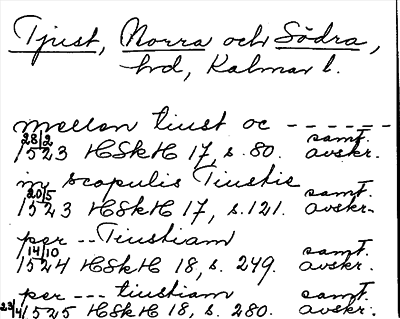 Tjust, Norra och Södra,
hd, Kalmar l.
mellan tiust oc ------
28/2 1523 HSkH 17, s. 80. samt. avskr.
in scopulis Tiustie
20/5 1523 HSkH 17, s. 121. samt. avskr.
per -- Tiustiam
14/10 1524 HSkH 18, s. 249. samt. avskr.
per --- tiustiam
23/4 1525 HSkH 18, s. 280. samt. avskr.